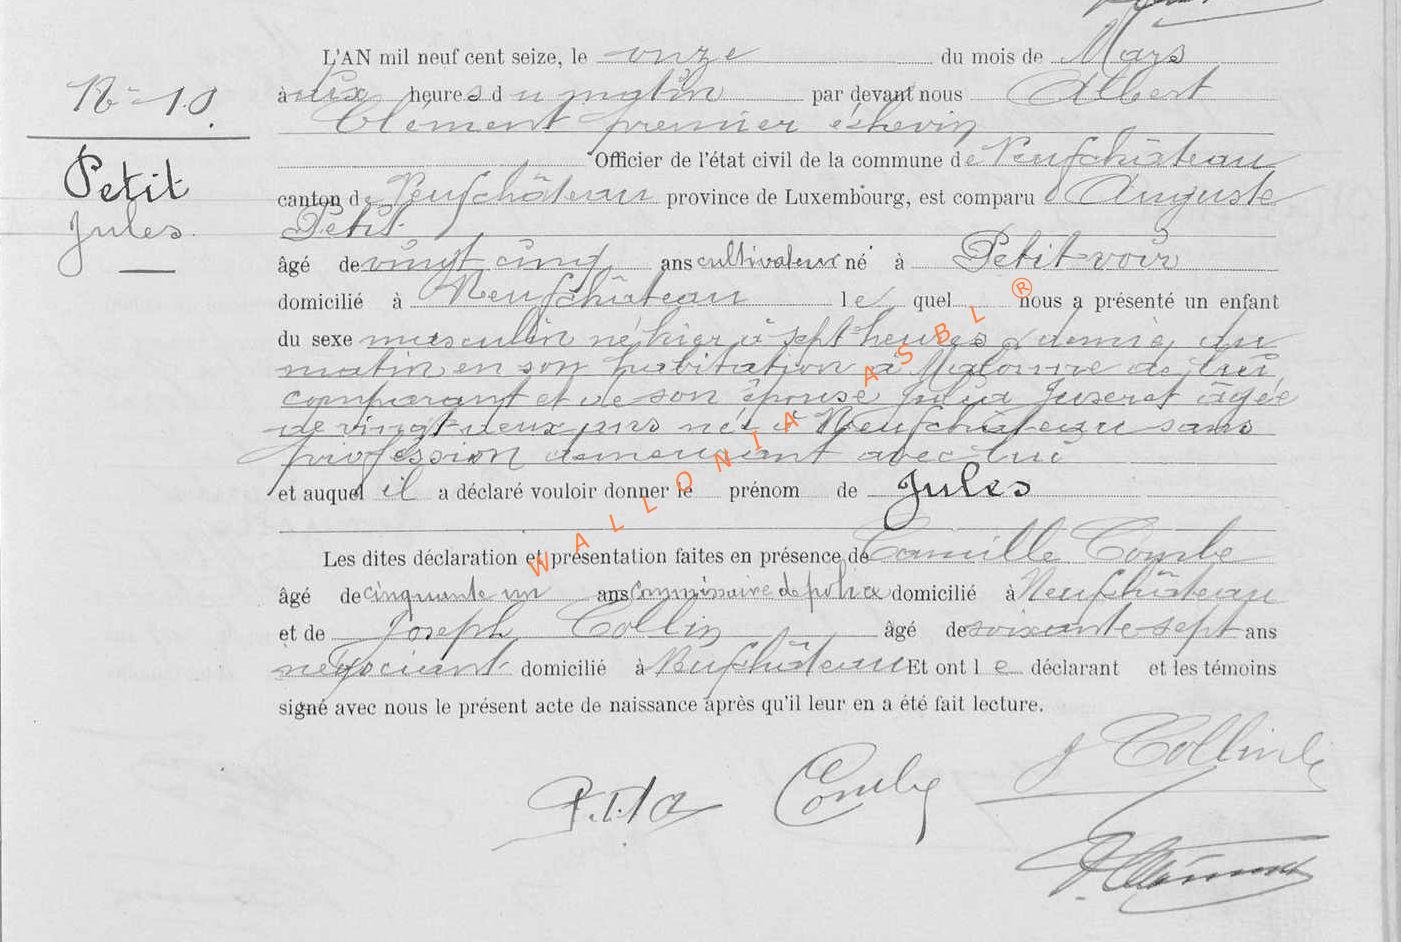 L'AN mil neuf cent seize, le onze du mois de Mars
N° 10.
à dix heures du matin par devant nous Albert
Clément premier échevin
Officier de l'état civil de la commune de Neufchâteau
Petit
Jules
canton de Neufchâteau province de Luxembourg, est comparu Auguste
Petit
âgé de vingt cinq ans cultivateur né à Petit-voir
domicilié à Neufchâteau lequel nous a présenté un enfant
du sexe masculin né hier à sept heures & demie du
matin en son habitation à de lui
comparant et de son épouse Julia Juseret âgée
de vingt deux ans née à Neufchâteau sans
profession demeurant avec lui
et auquel il a déclaré vouloir donner le prénom de Jules
Les dites déclaration et présentation faites en présence de Camille Combe
âgé de cinquante un ans commissaire de police domicilié à Neufchâteau
et de Joseph Collin âgé de soixante sept ans
négociant domicilié à Neufchâteau Et ont le déclarant et les témoins
signé avec nous le présent acte de naissance après qu'il leur en a été fait lecture.
J Collin
Combe
A Clément
WALLONIA ASBL ®